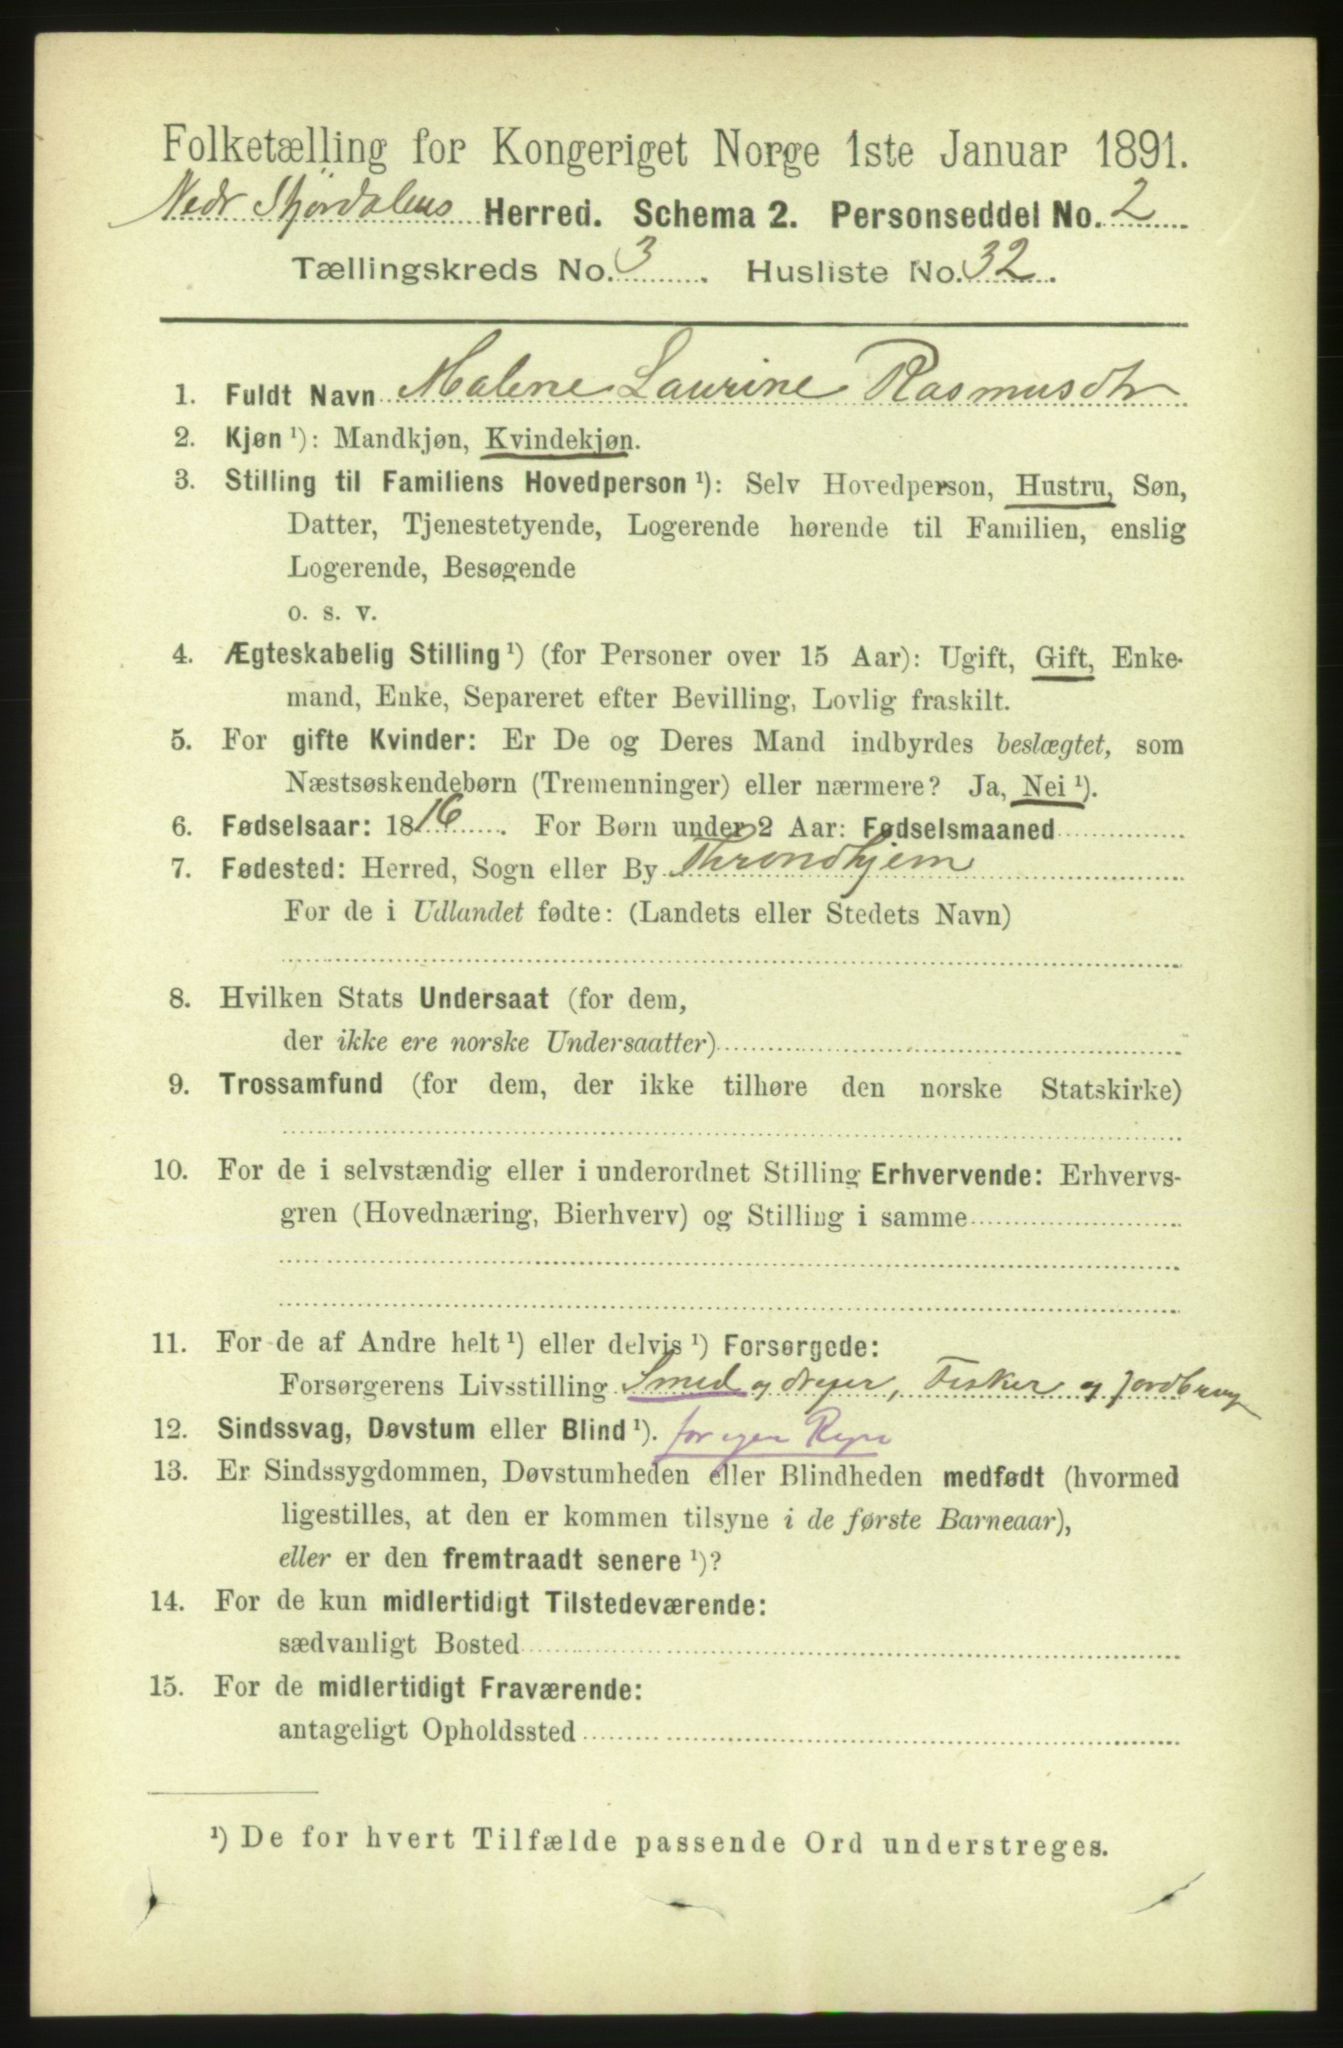 Folketælling for Kongeriget Norge 1ste Januar 1891.
Nedr Stjørdalens Herred. Schema 2. Personseddel No. 2
Tællingskreds No. 3. Husliste No. 32.
1. Fuldt Navn Malene Laurine Rasmusdtr
2. Kjøn ¹): Mandkjøn, Kvindekjøn.
3. Stilling til Familiens Hovedperson ¹): Selv Hovedperson, Hustru, Søn,
Datter, Tjenestetyende, Logerende hørende til Familien, enslig
Logerende, Besøgende
o. s. v.
4. Ægteskabelig Stilling ¹) (for Personer over 15 Aar): Ugift, Gift, Enke-
mand, Enke, Separeret efter Bevilling, Lovlig fraskilt.
5. For gifte Kvinder: Er De og Deres Mand indbyrdes beslægtet, som
Næstsøskendebørn (Tremenninger) eller nærmere? Ja, Nei ¹).
6. Fødselsaar: 1816. For Børn under 2 Aar: Fødselsmaaned
7. Fødested: Herred, Sogn eller By Throndhjem
For de i Udlandet fødte: (Landets eller Stedets Navn)
8. Hvilken Stats Undersaat (for dem,
der ikke ere norske Undersaatter)
9. Trossamfund (for dem, der ikke tilhøre den norske Statskirke)
10. For de i selvstændig eller i underordnet Stilling Erhvervende: Erhvervs-
gren (Hovednæring, Bierhverv) og Stilling i samme
11. For de af Andre helt ¹) eller delvis ¹) Forsørgede:
Forsørgerens Livsstilling Smed og dreyer, Fisker og Jordbrug
12. Sindssvag, Døvstum eller Blind ¹). for egen Regn
13. Er Sindssygdommen, Døvstumheden eller Blindheden medfødt (hvormed
ligestilles, at den er kommen tilsyne i de første Barneaar),
eller er den fremtraadt senere ¹)?
14. For de kun midlertidigt Tilstedeværende:
sædvanligt Bosted
15. For de midlertidigt Fraværende:
antageligt Opholdssted
¹) De for hvert Tilfælde passende Ord understreges.